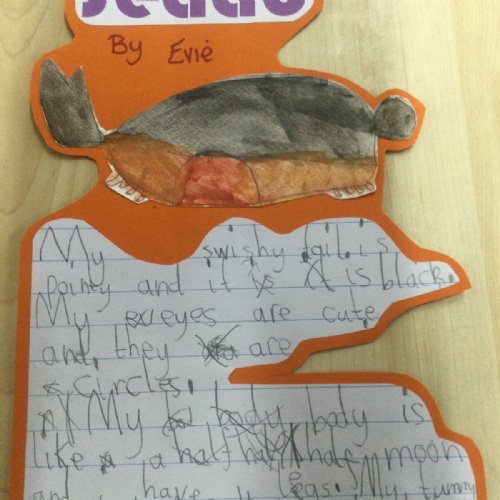 By Evie
My swishy tail is
pointy and it is black.
My eyeyes are cute
and they are
circles.
My body is
like a half half half moon
and i have 4 legs. My tummy